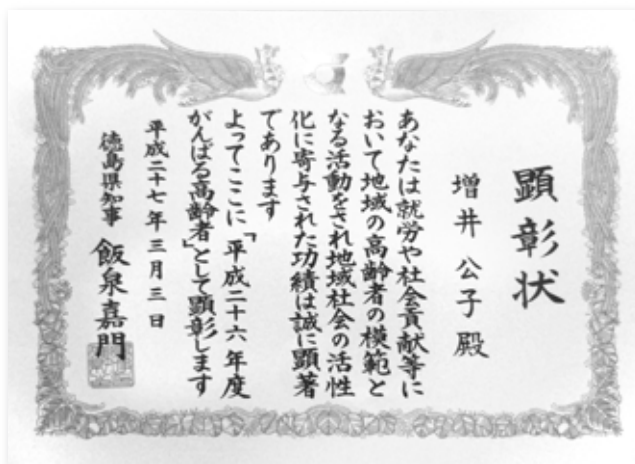 顕彰状
増井公子殿
あなたは就労や社会貢献等に
おいて地域の高齢者の模範と
なる活動をされ地域社会の活性
化に寄与された功績は誠に顕著
であります
よってここに「平成二十六年度
がんばる高齢者」として顕彰します
平成二十七年三月三日
徳島県知事 飯泉嘉門